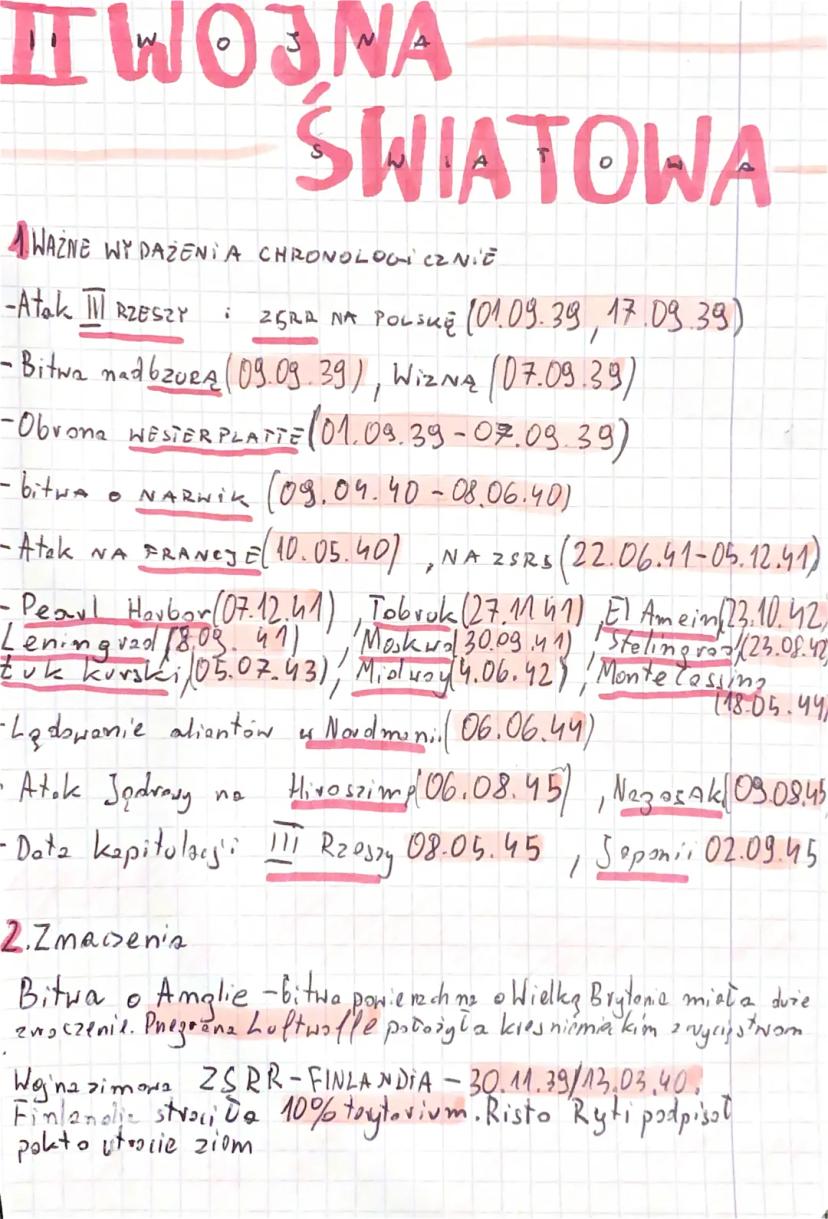 II WOJNA
ŚWIATOWA
1. WAŻNE WYDAŻENIA CHRONOLOGICZNIE
-Atak III RZESZY i ZSRR NA POLSKĘ (01.09.39, 17.09.39)
-Bitwa nad BZURĄ (09.09.39), WIZNĄ (07.09.39)
-Obrona WESTERPLATTE (01.09.39-07.09.39)
-bitwa o NARWIK (09.04.40-08.06.40)
-Atak NA FRANCJE (10.05.40), NA ZSRS (22.06.41-05.12.41)
-Pearl Harbor (07.12.41), Tobruk (27.11 41), El Amein (23.10.42,
Leningrad (8.09. 41), Moskwa (30.09.41), Stelingrad (23.08.42
Łuk kurski, (05.07.43), Midway (4.06.42), Monte Cassino
(18.05.44)
-Lądowanie aliantów w Nordmanii (06.06.44)
- Atak Jądrowy na Hiroszimę (06.08.45), Nagasaki (09.08.45,
-Data kapitulacji III Rzeszy 08.05.45, Japonii 02.09.45
2. Zmaczenia
Bitwa o Anglie -bitwa powierzchna o Wielką Brytanie miała duże
znaczenie. Przegrana Luftwaffe położyła kres niemieckim zwycięstwom
Wojna zimowa ZSRR-FINLANDIA - 30.11.39/13.03.40.
Finlandia straciła 10% terytorium. Risto Ryti podpisał
pakt o utracie ziem